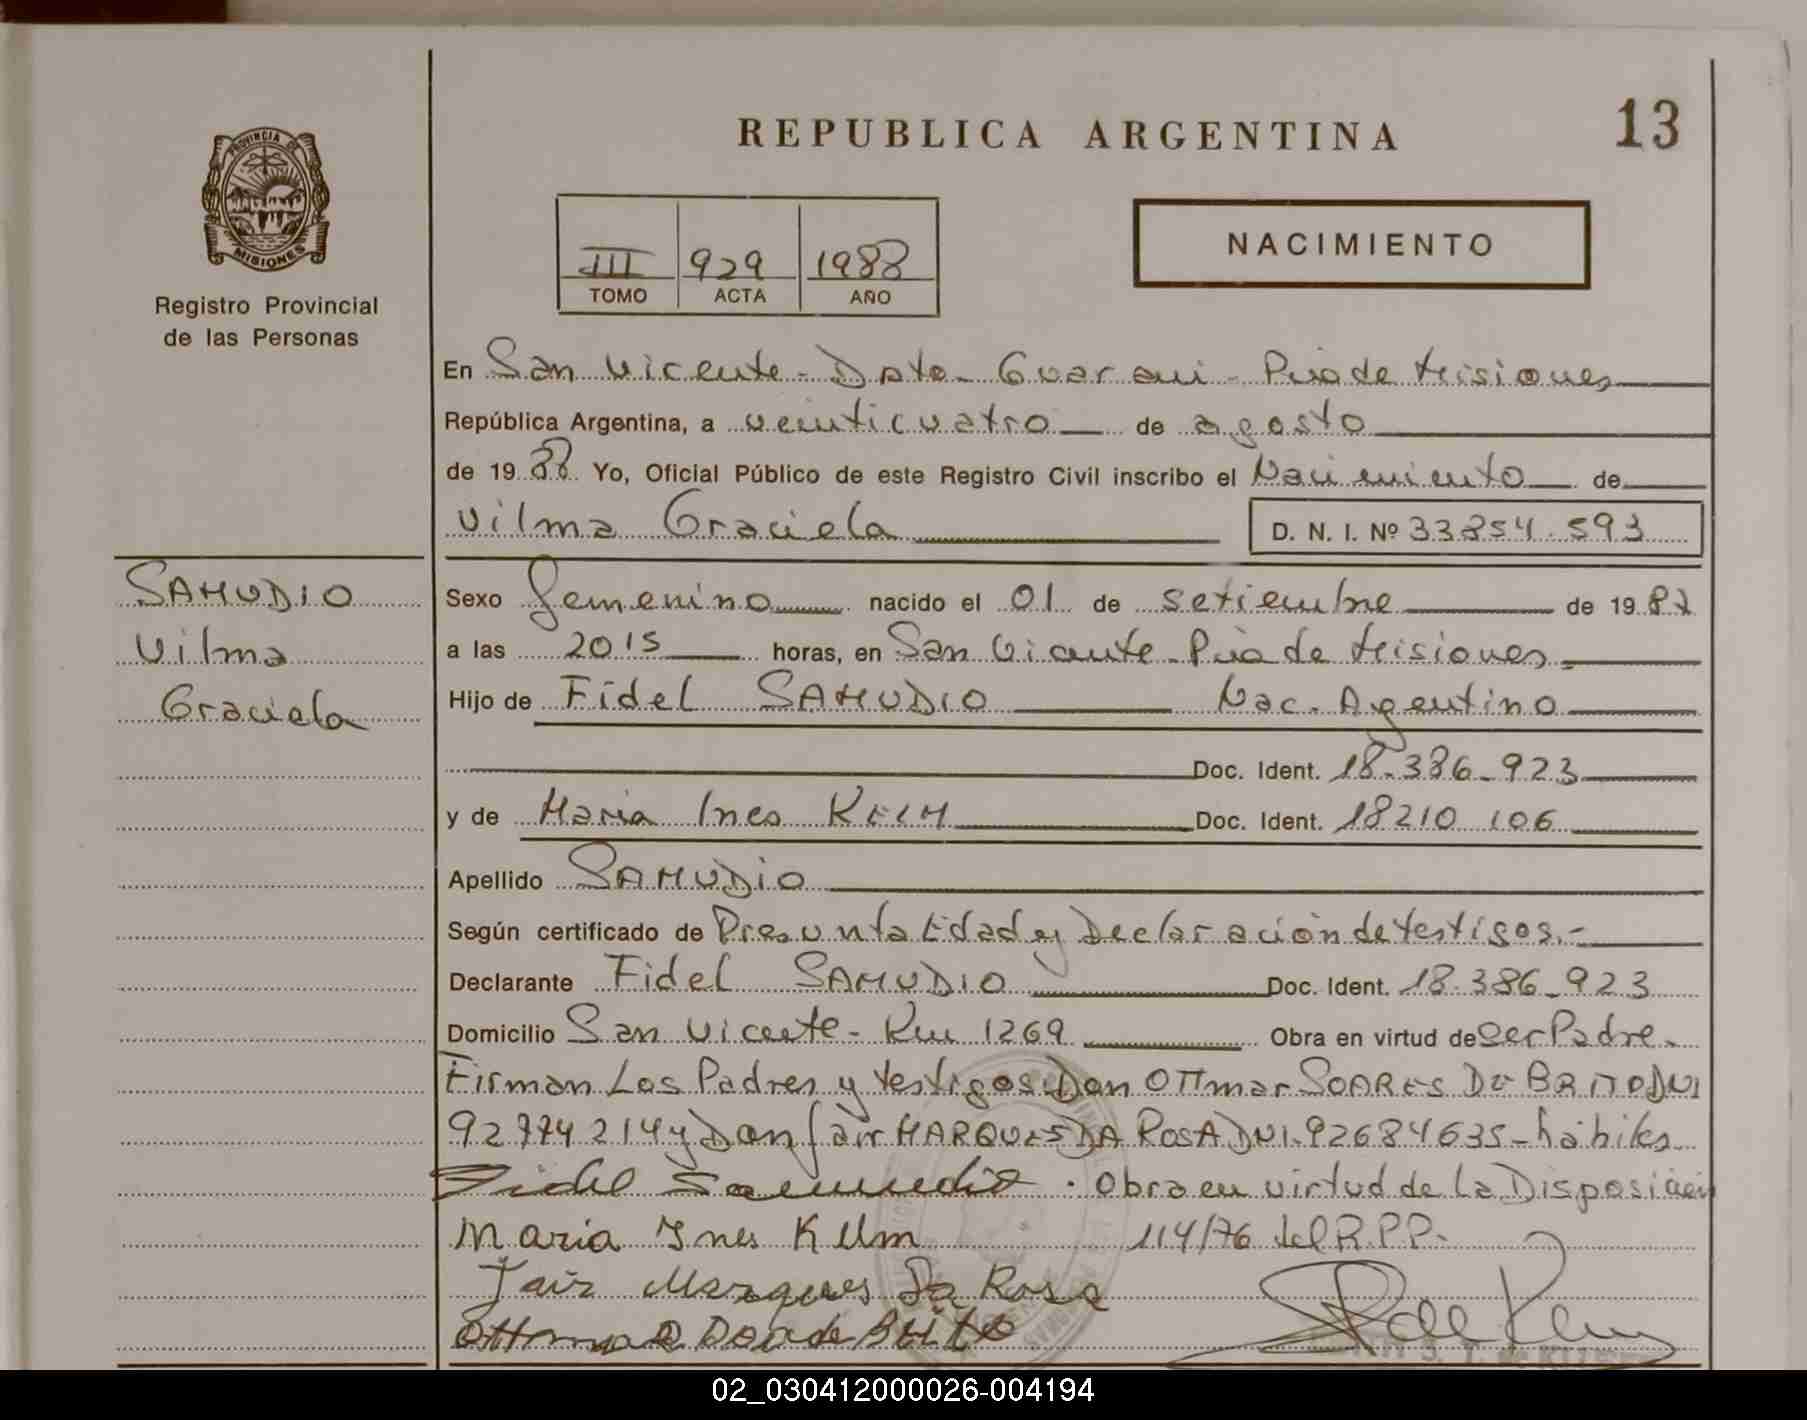 PROVINCIA DE
MISIONES
Registro Provincial
de las Personas
REPUBLICA ARGENTINA
13
III 929 1988
TOMO ACTA AÑO
NACIMIENTO
En San Vicente - Dpto. Guarani - Pcia de Misiones
República Argentina, a veinticuatro de agosto
de 19 88 Yo, Oficial Público de este Registro Civil inscribo el Nacimiento de
Vilma Graciela D. N. I. Nº 33854.593
SAMUDIO
Vilma
Graciela
Sexo femenino nacido el 01 de setiembre de 19 87
a las 2015 horas, en San Vicente - Pcia de Misiones
Hijo de Fidel SAMUDIO Nac. Agentino
Doc. Ident. 18.386.923
y de Maria Ines KELM Doc. Ident. 18210 106
Apellido SAMUDIO
Según certificado de Presunta Edad y Declaración de testigos.-
Declarante Fidel SAMUDIO Doc. Ident. 18.386.923
Domicilio San Vicente - Km 1269 Obra en virtud de ser Padre.
Firman Los Padres y testigos Don OTTmar SOARES DE BRITO DNI
92774214 y Don Jair MARQUES DA ROSA DNI. 92684635 - hábiles
Fidel Samudio . Obra en virtud de la Disposición
Maria Ines Kelm 114/76 del R.P.P.
Jair Marques Da Rosa
02_030412000026-004194